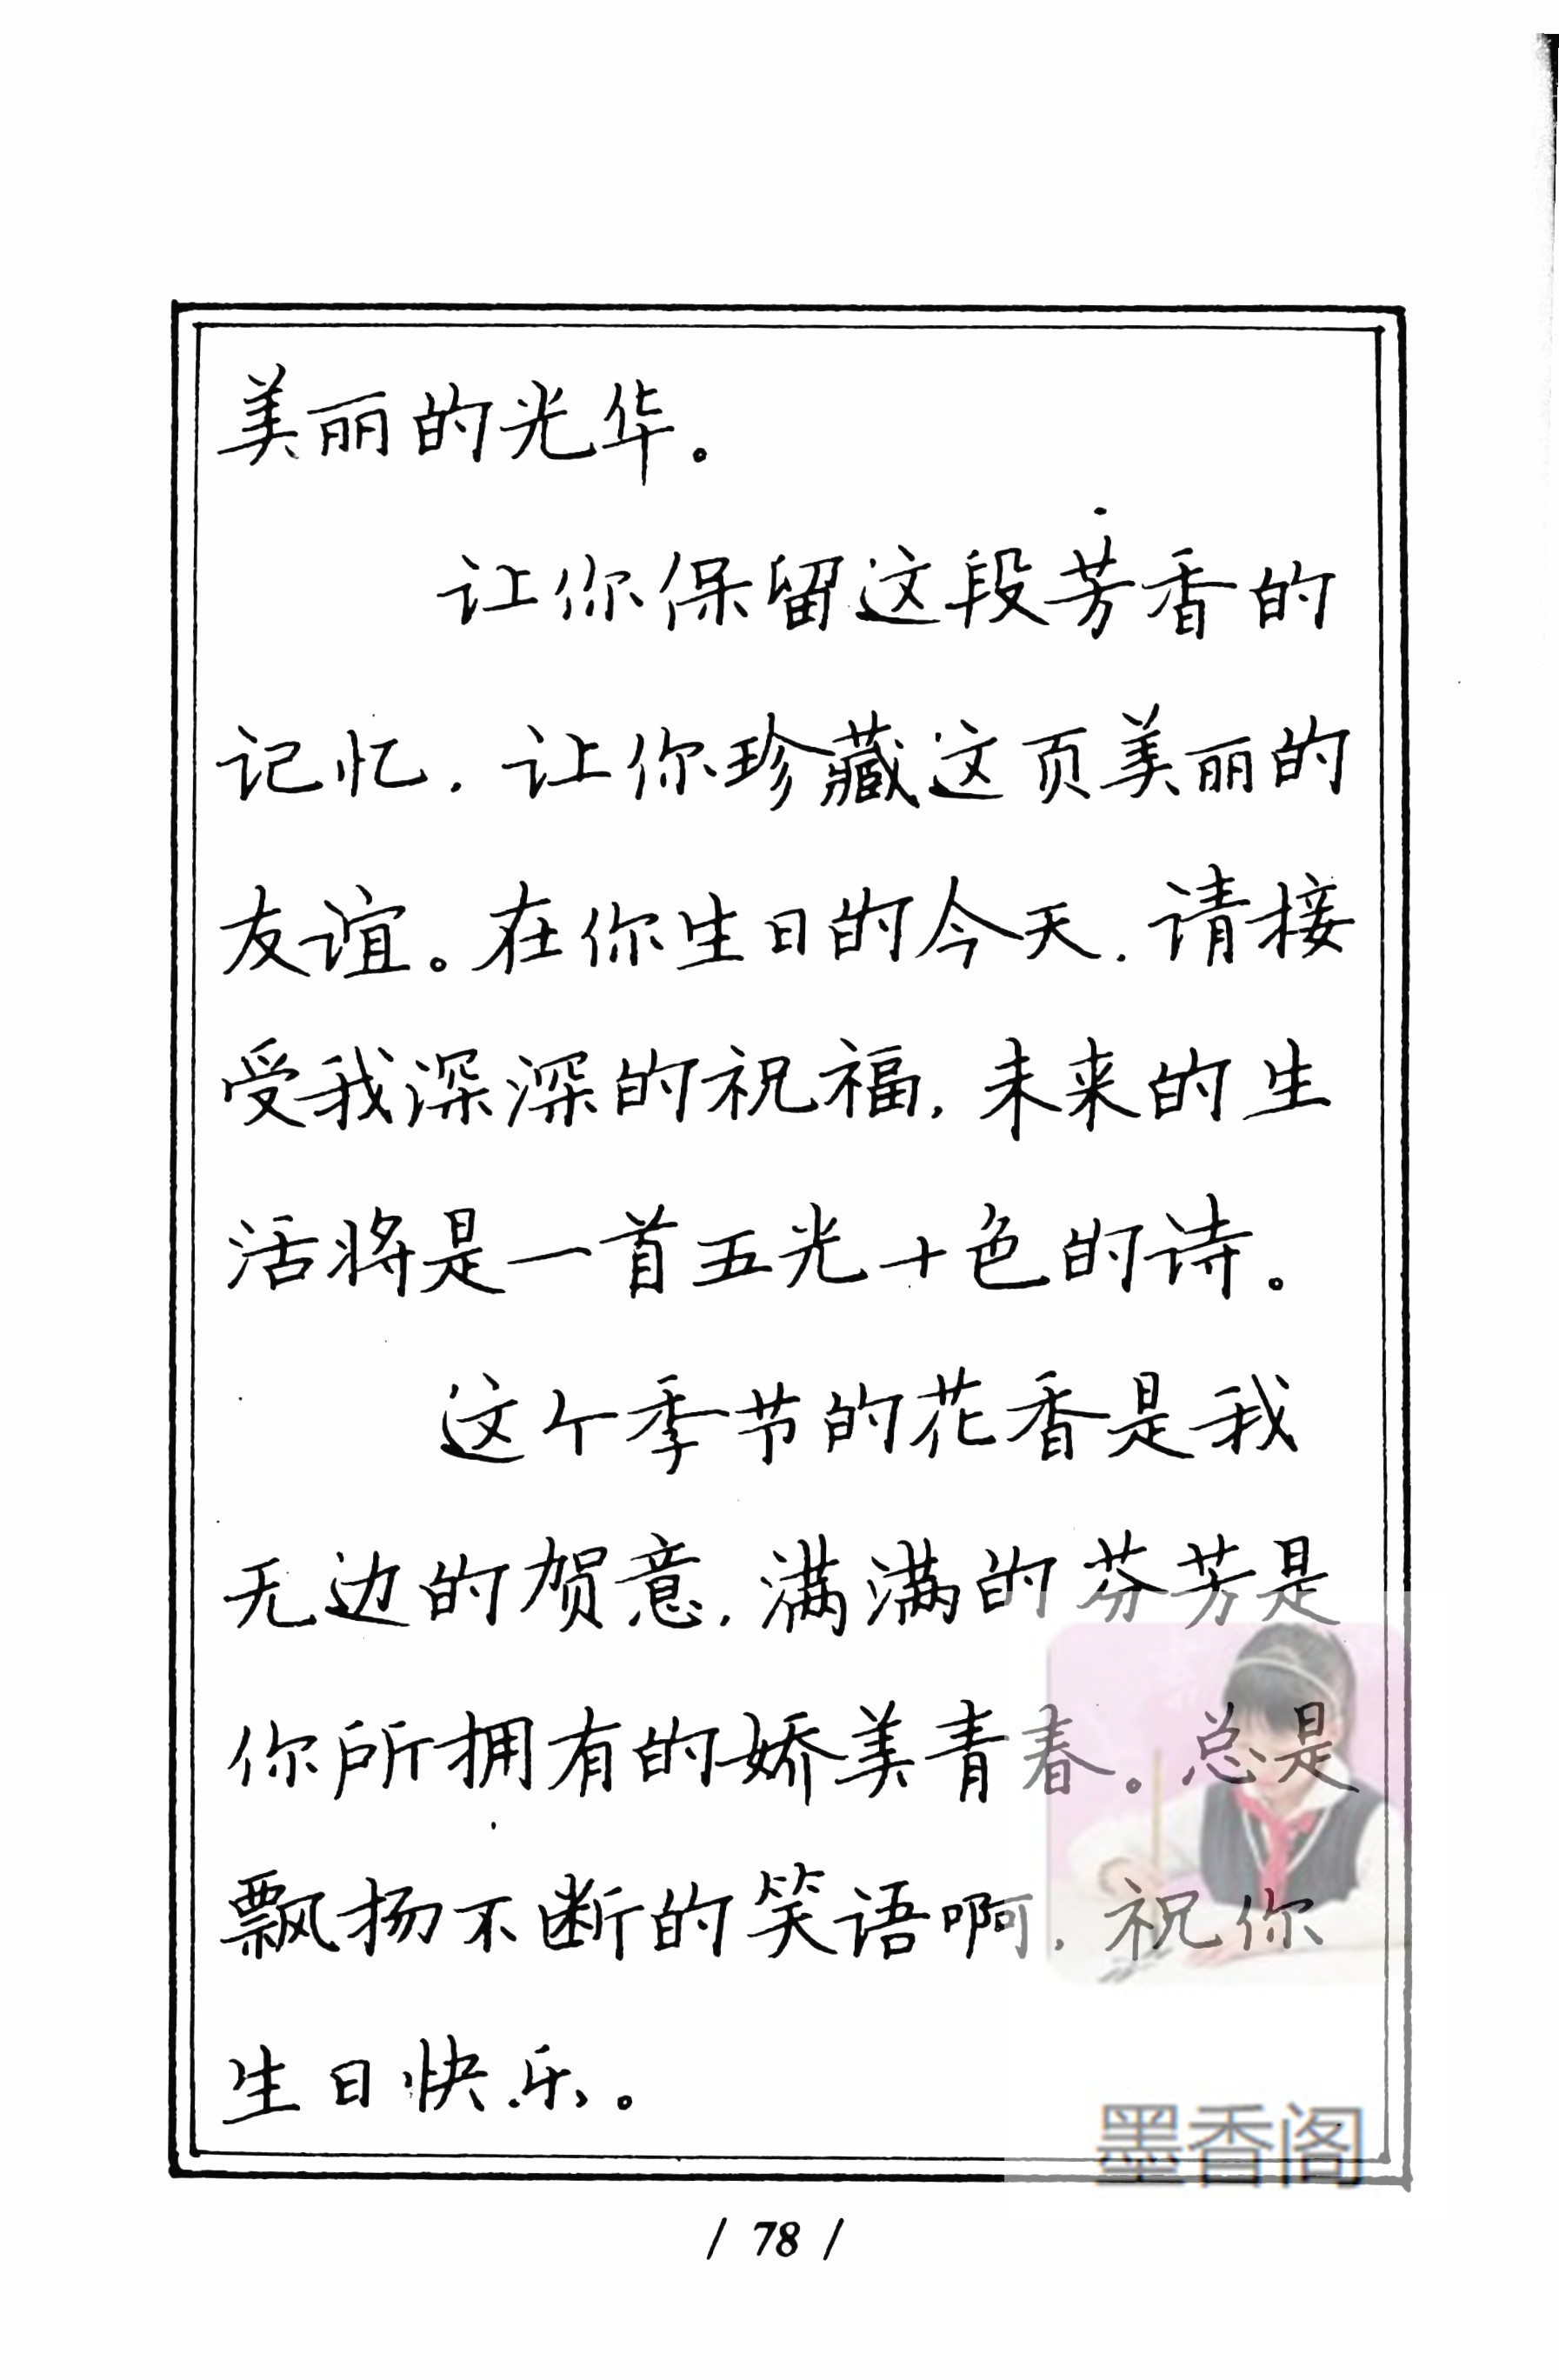 美丽的光华。
让你保留这段芳香的
记忆，让你珍藏这页美丽的
友谊。在你生日的今天，请接
受我深深的祝福，未来的生
活将是一首五光十色的诗。
这个季节的花香是我
无边的贺意，满满的芬芳是
你所拥有的娇美青春。总是
飘扬不断的笑语啊，祝你
生日快乐。
墨香阁
/ 78 /